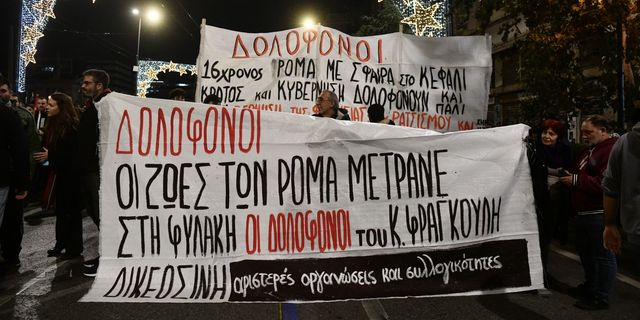 ΔΟΛΟΦΟΝΟΙ
16χρονος ΡΟΜΑ ΜΕ ΣΦΑΙΡΑ ΣΤΟ ΚΕΦΑΛΙ
ΚΡΑΤΟΣ ΚΑΙ ΚΥΒΕΡΝΗΣΗ ΔΟΛΟΦΟΝΟΥΝ ΠΑΛΙ
ΤΗΣ ΡΑΤΣΙΣΜΟΥ ΚΑΙ
ΔΟΛΟΦΟΝΟΙ
ΟΙ ΖΩΕΣ ΤΩΝ ΡΟΜΑ ΜΕΤΡΑΝΕ
ΣΤΗ ΦΥΛΑΚΗ ΟΙ ΔΟΛΟΦΟΝΟΙ του Κ. ΦΡΑΓΚΟΥΛΗ
ΔΙΚΕΟΣΙΝΗ αριστερές οργανώσεις και συλλογικότητες